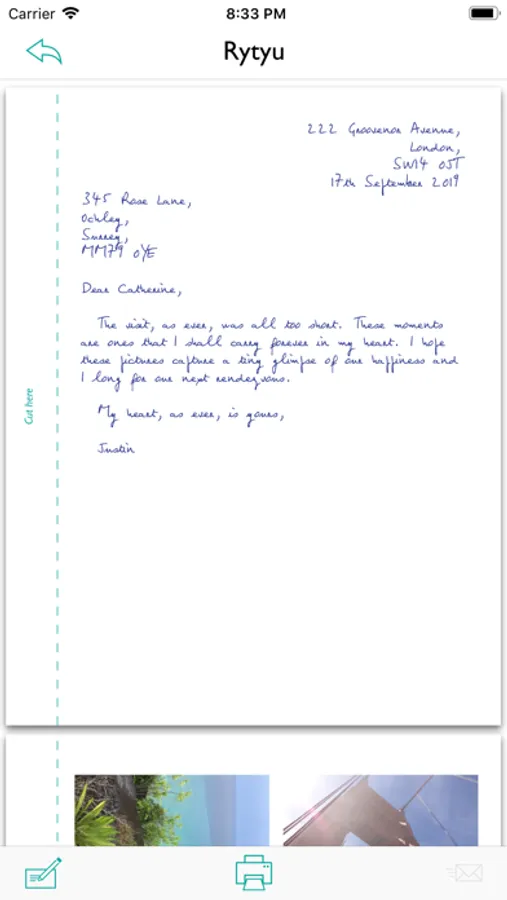 Carrier 8:33 PM
Rytyu
222 Groovenor Avenue,
London,
SW14 0JT
17th September 2019
345 Rose Lane,
Ockley,
Surrey,
MM79 0YE
Dear Catherine,
The visit, as ever, was all too short. These moments
are ones that I shall carry forever in my heart. I hope
these pictures capture a tiny glimpse of our happiness and
I long for our next rendezvous.
My heart, as ever, is yours,
Justin
Cut here